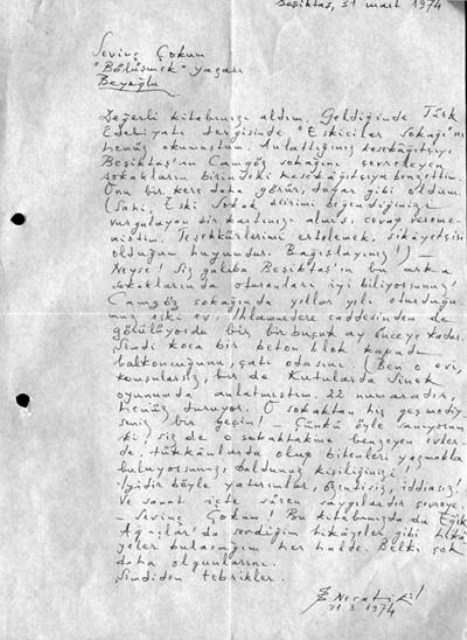 Beşiktaş, 31 mart 1974
Sevinç Çokum
"Bölüşmek" yazarı
Beyoğlu
Değerli kitabınızı aldım. Geldiğinde Türk
Edebiyatı dergisinde "Eskiciler Sokağı"nı
henüz okumuştum. Anlattığınız kesekâğıtçıyı
Beşiktaş'ın Camgöz sokağını çevreleyen
sokakların birindeki kesekâğıtçıya benzettim.
Onu bir kere daha görür, duyar gibi oldum.
(Sahi, Eski Sokak şiirimi beğendiğinizi
vurgulayan bir kartınızı almış, cevap vereme-
miştim. Teşekkürlerimi ertelemek, şikâyetçisi
olduğum huyumdur. Bağışlayınız!) —
Neyse! Siz galiba Beşiktaş'ın bu arka
sokaklarında oturanları iyi biliyorsunuz!
Camgöz sokağında yıllar yılı oturduğu-
muz eski ev, Ihlamurdere caddesinden de
görülüyordu bir, bir buçuk ay önceye kadar.
Şimdi koca bir beton blok kapadı
balkoncuğunu, çatı odasını. (Ben o evi,
komşularsız, bir de Kutularda Sinek
oyununda anlatmıştım. 22 numaradır,
henüz duruyor. O sokaktan hiç geçmediy-
seniz, bir geçin! — Çünkü öyle sanıyorum
ki, siz de o sokaktakine benzeyen evler-
de, dükkânlarda olup bitenleri yazmakla
buluyorsunuz, buldunuz kişiliğinizi!
İyidir böyle yatırımlar, özentisiz, iddiasız!
Ve sanat içte süren saygılardır çevreye.
— Sevinç Çokum! Bu kitabınızda da Eğik
Ağaçlar'da sevdiğim hikâyeler gibi hikâ-
yeler bulacağım her halde. Belki çok
daha olgunlarını.
Şimdiden tebrikler.
31.3.1974